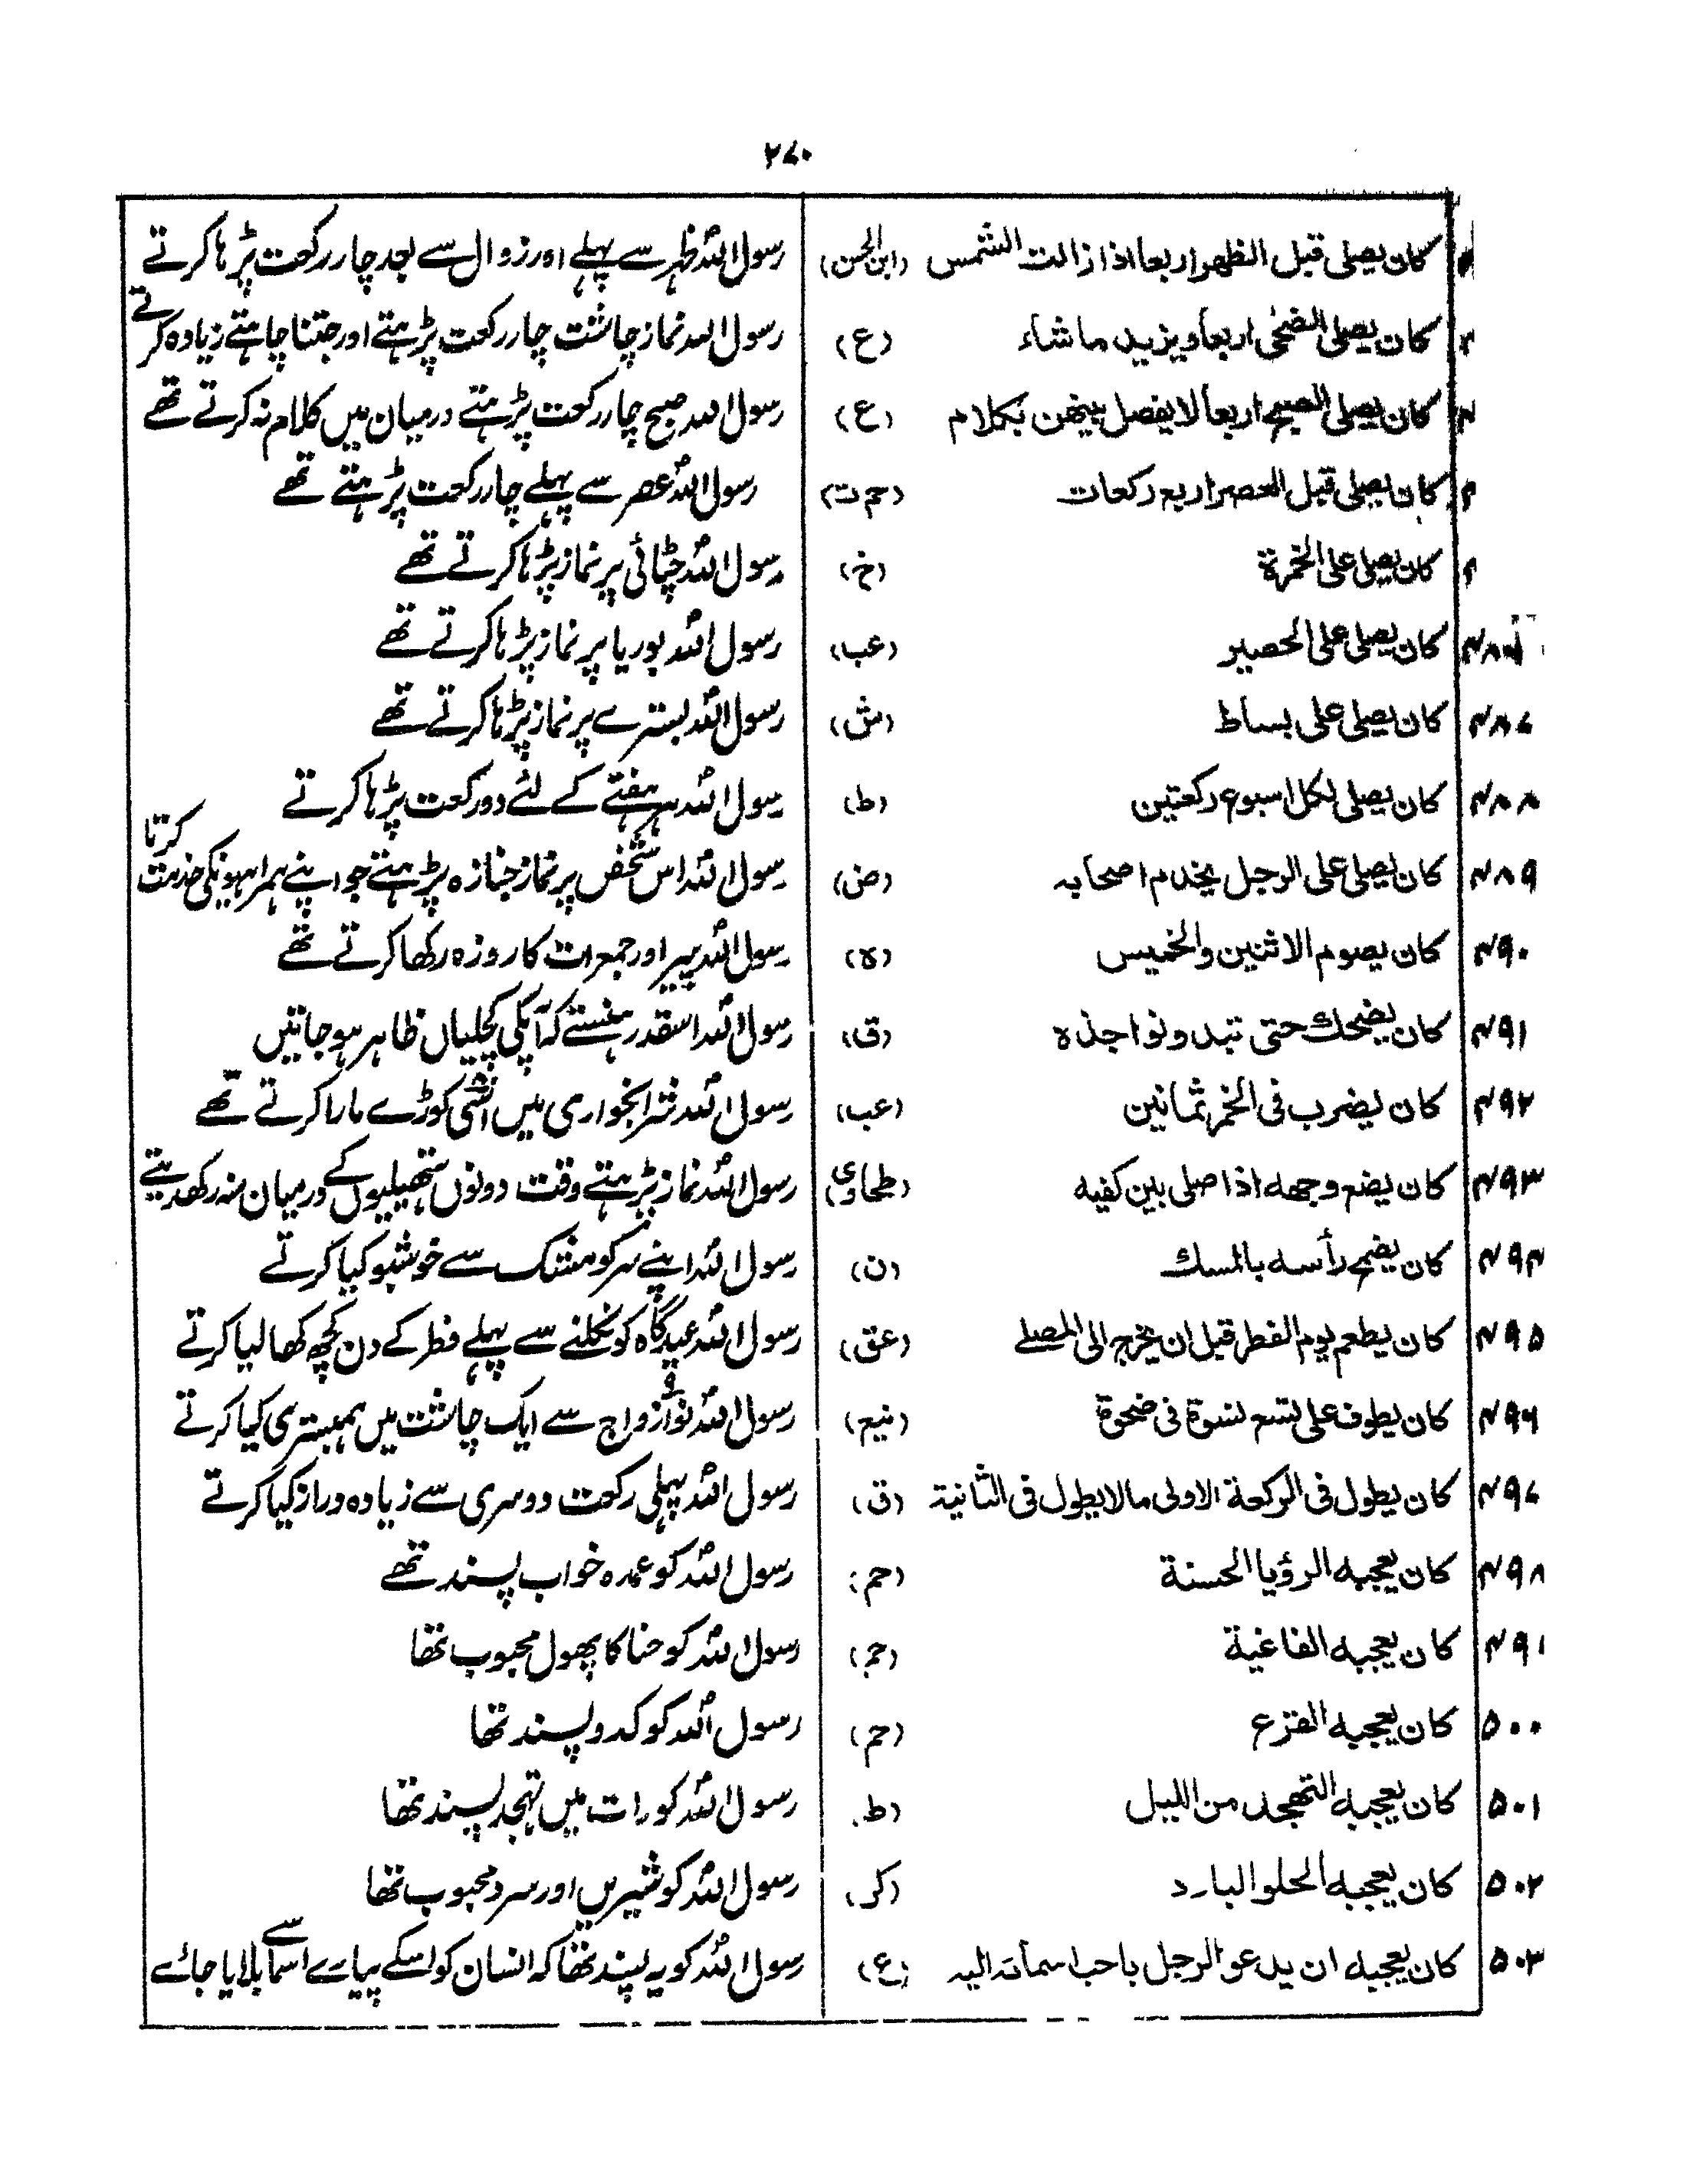 ۲۷۰
کان یصلی قبل الظهر اربعا اذا زالت الشمس (ابن الحسن) رسول اللہؐ ظہر سے پہلے اور زوال سے بعد چار رکعت پڑہا کرتے
کان یصلی الضحٰی اربعاً ویزید ما شاء (ع) رسول اللہ نماز چاشت چار رکعت پڑہتے اور جتنا چاہتے زیادہ کرتے
کان یصلی الصبح اربعاً لا یفصل بینهن بکلام (ع) رسول اللہ صبح چار رکعت پڑہتے درمیان میں کلام نہ کرتے تھے
کان یصلی قبل العصر اربع رکعات (حم ت) رسول اللہؐ عصر سے پہلے چار رکعت پڑہتے تھے
کان یصلی علی الخمرة (خ) رسول اللہؐ چٹائی پر نماز پڑہا کرتے تھے
۴۸۶ کان یصلی علی الحصیر (عب) رسول اللہؐ بوریا پر نماز پڑہا کرتے تھے
۴۸۷ کان یصلی علی بساط (ش) رسول اللہؐ بسترے پر نماز پڑہا کرتے تھے
۴۸۸ کان یصلی لکل اسبوع رکعتین (ط) رسول اللہؐ ہر ہفتے کے لئے دو رکعت پڑہا کرتے
۴۸۹ کان یصلی علی الرجل یخدم اصحابہ (ض) رسول اللہؐ اس شخص پر نماز جنازہ پڑہتے جو اپنے ہمراہیونکی خدمت کرتا
۴۹۰ کان یصوم الاثنین والخمیس (ہ) رسول اللہؐ پیر اور جمعرات کا روزہ رکھا کرتے تھے
۴۹۱ کان یضحک حتی تبدو نواجذہ (ق) رسول اللہؐ اسقدر ہنستے کہ آپکی کچلیاں ظاہر ہو جاتیں
۴۹۲ کان یضرب فی الخمر ثمانین (عب) رسول اللہؐ شرابخواری میں اسّی کوڑے مارا کرتے تھے
۴۹۳ کان یضع وجهہ اذا صلی بین کفیہ (طحاوی) رسول اللہؐ نماز پڑہتے وقت دونوں ہتھیلیوں کے درمیان منہ رکھدیتے
۴۹۴ کان یضمخ رأسہ بالمسک (ن) رسول اللہؐ اپنے سر کو مشک سے خوشبو کیا کرتے
۴۹۵ کان یطعم یوم الفطر قبل ان یخرج الی المصلے (عق) رسول اللہؐ عیدگاہ کو نکلنے سے پہلے فطر کے دن کچھ کھا لیا کرتے
۴۹۶ کان یطوف علی تسع نسوة فی ضحوة (منیع) رسول اللہؐ نو ازواج سے ایک چاشت میں ہمبستری کیا کرتے
۴۹۷ کان یطول فی الرکعة الاولی مالا یطول فی الثانیة (ق) رسول اللہؐ پہلی رکعت دوسری سے زیادہ دراز کیا کرتے
۴۹۸ کان یعجبہ الرؤیا الحسنة (حم) رسول اللہؐ کو عمدہ خواب پسند تھے
۴۹ کان یعجبہ الفاغیة (حم) رسول اللہؐ کو حنا کا پھول محبوب تھا
۵۰۰ کان یعجبہ القرع (حم) رسول اللہؐ کو کدو پسند تھا
۵۰۱ کان یعجبہ التهجد من اللیل (ط) رسول اللہؐ کو رات میں تہجد پسند تھا
۵۰۲ کان یعجبہ الحلو البارد (کر) رسول اللہؐ کو شیریں اور سرد محبوب تھا
۵۰۳ کان یعجبہ ان یدعو الرجل باحب اسمائہ الیہ (ع) رسول اللہؐ کو یہ پسند تھا کہ انسان کو اسکے پیارے اسما سے بلایا جائے